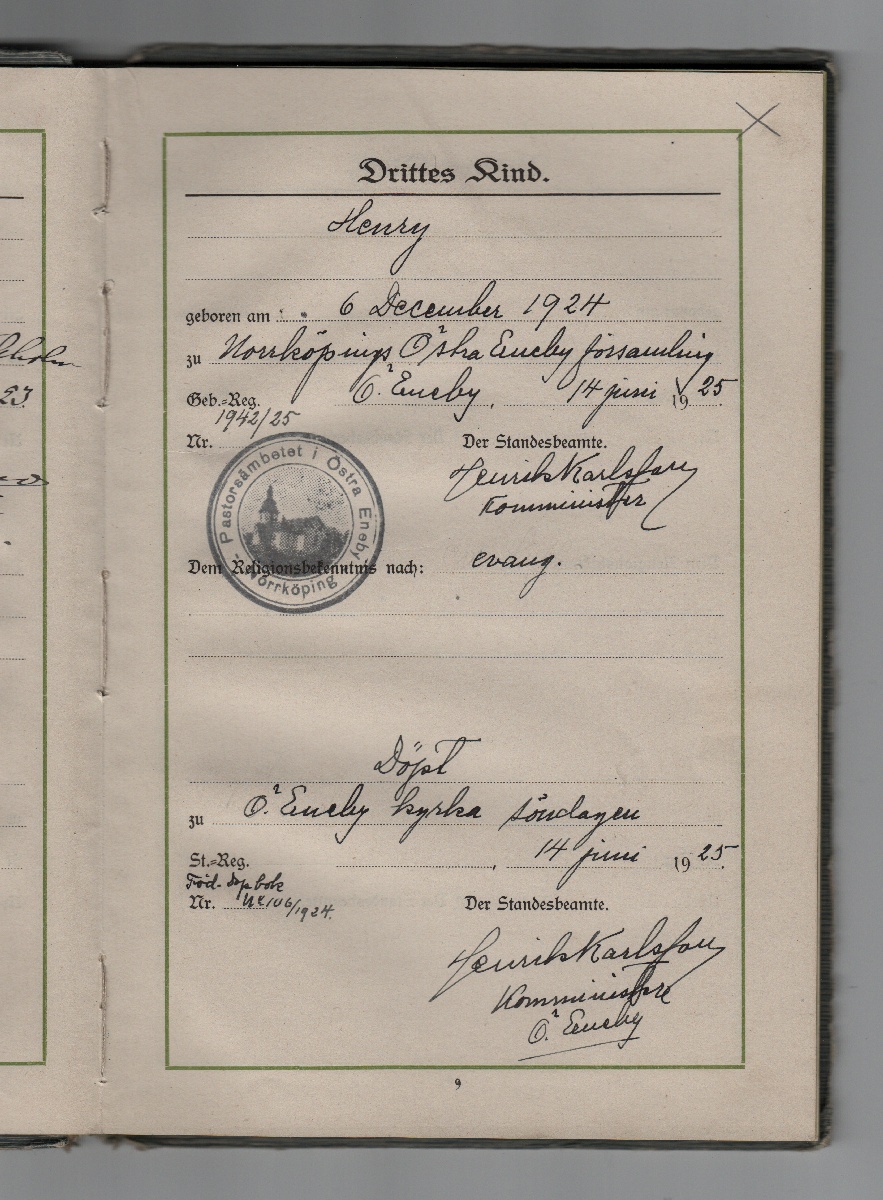 Drittes Kind.
Henry
geboren am 6 December 1924
zu Norrköpings Östra Eneby församling
Geb.-Reg. Ö. Eneby, 14 juni 1925
1942/25
Nr. Der Standesbeamte.
Henrik Karlsson
Komminister
Pastorsämbetet i Östra Eneby
Norrköping
Dem Religionsbekenntnis nach: evang.
Döpt
zu Ö. Eneby kyrka söndagen
St.-Reg. , 14 juni 1925.
Föd. dopbok
Nr. 106/1924. Der Standesbeamte.
Henrik Karlsson
Komministre
Ö. Eneby
9
23